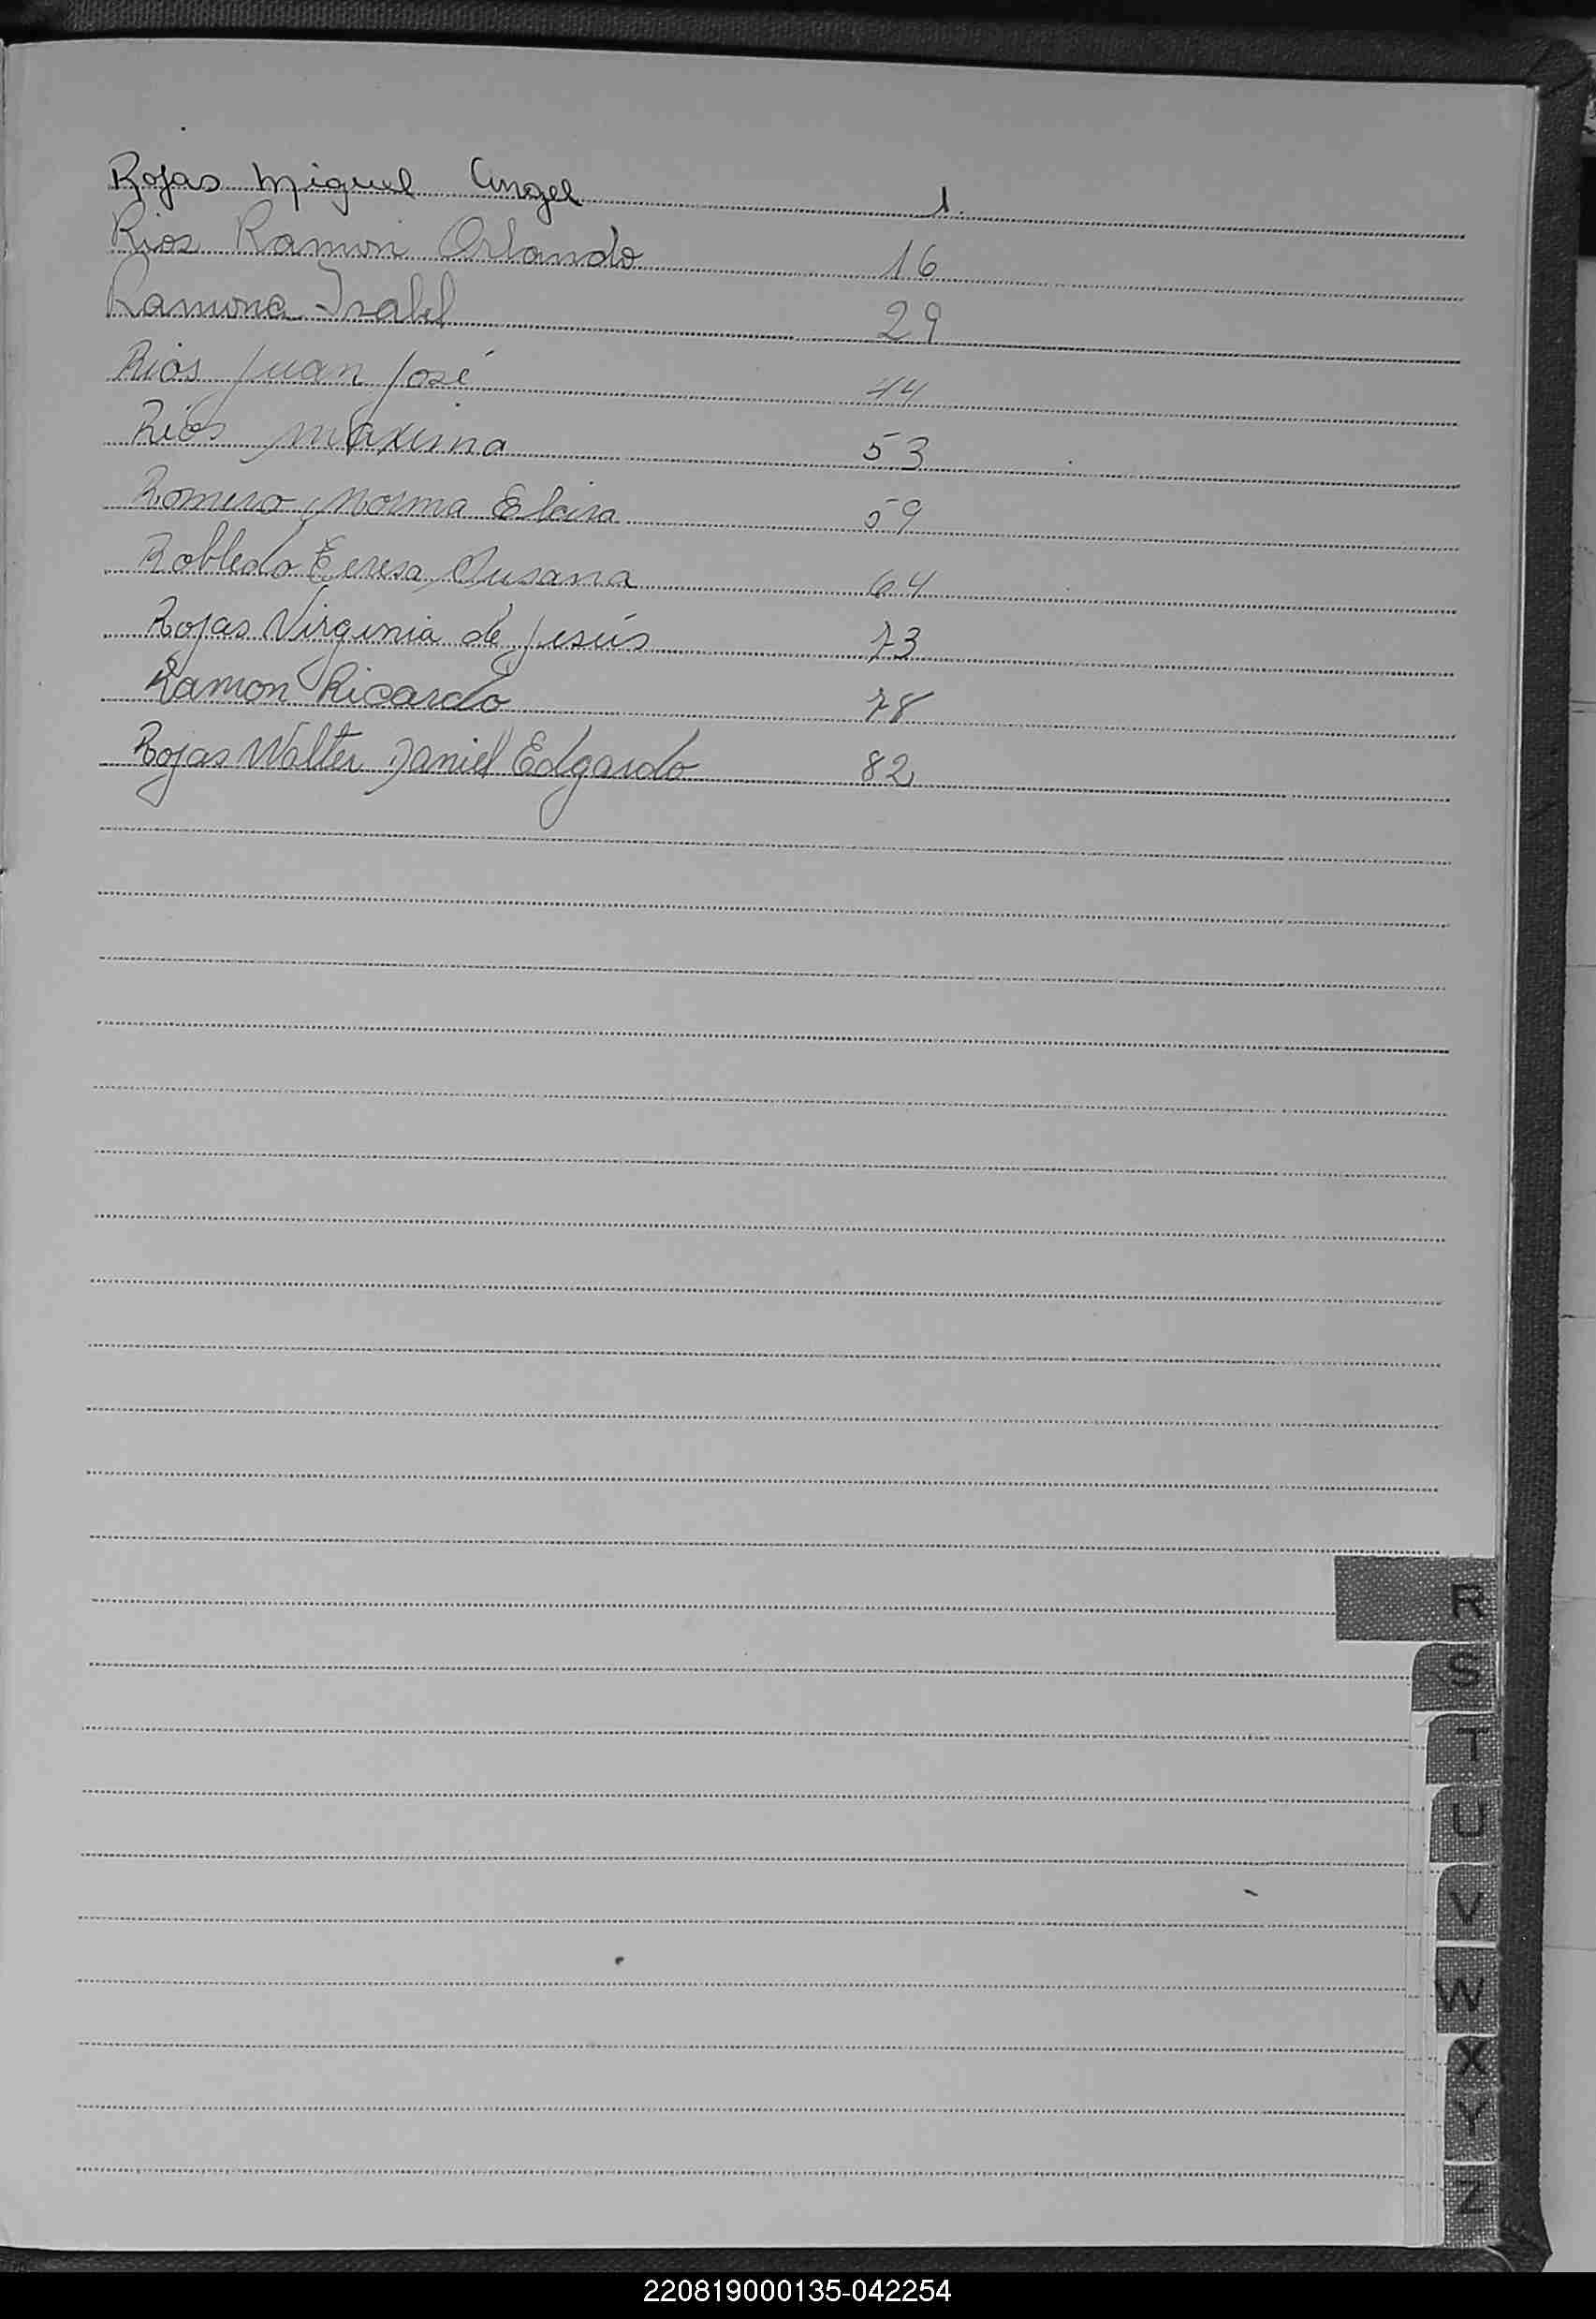 Rojas Miguel Angel 1
Rios Ramon Orlando 16
Ramona Isabel 29
Rios Juan José 44
Rios Maxima 53
Romero, Norma Elvira 59
Robledo Teresa Susana 64
Rojas Virginia de Jesús 73
Ramon Ricardo 78
Rojas Walter Daniel Edgardo 82
R
S
T
U
V
W
X
Y
Z
220819000135-042254